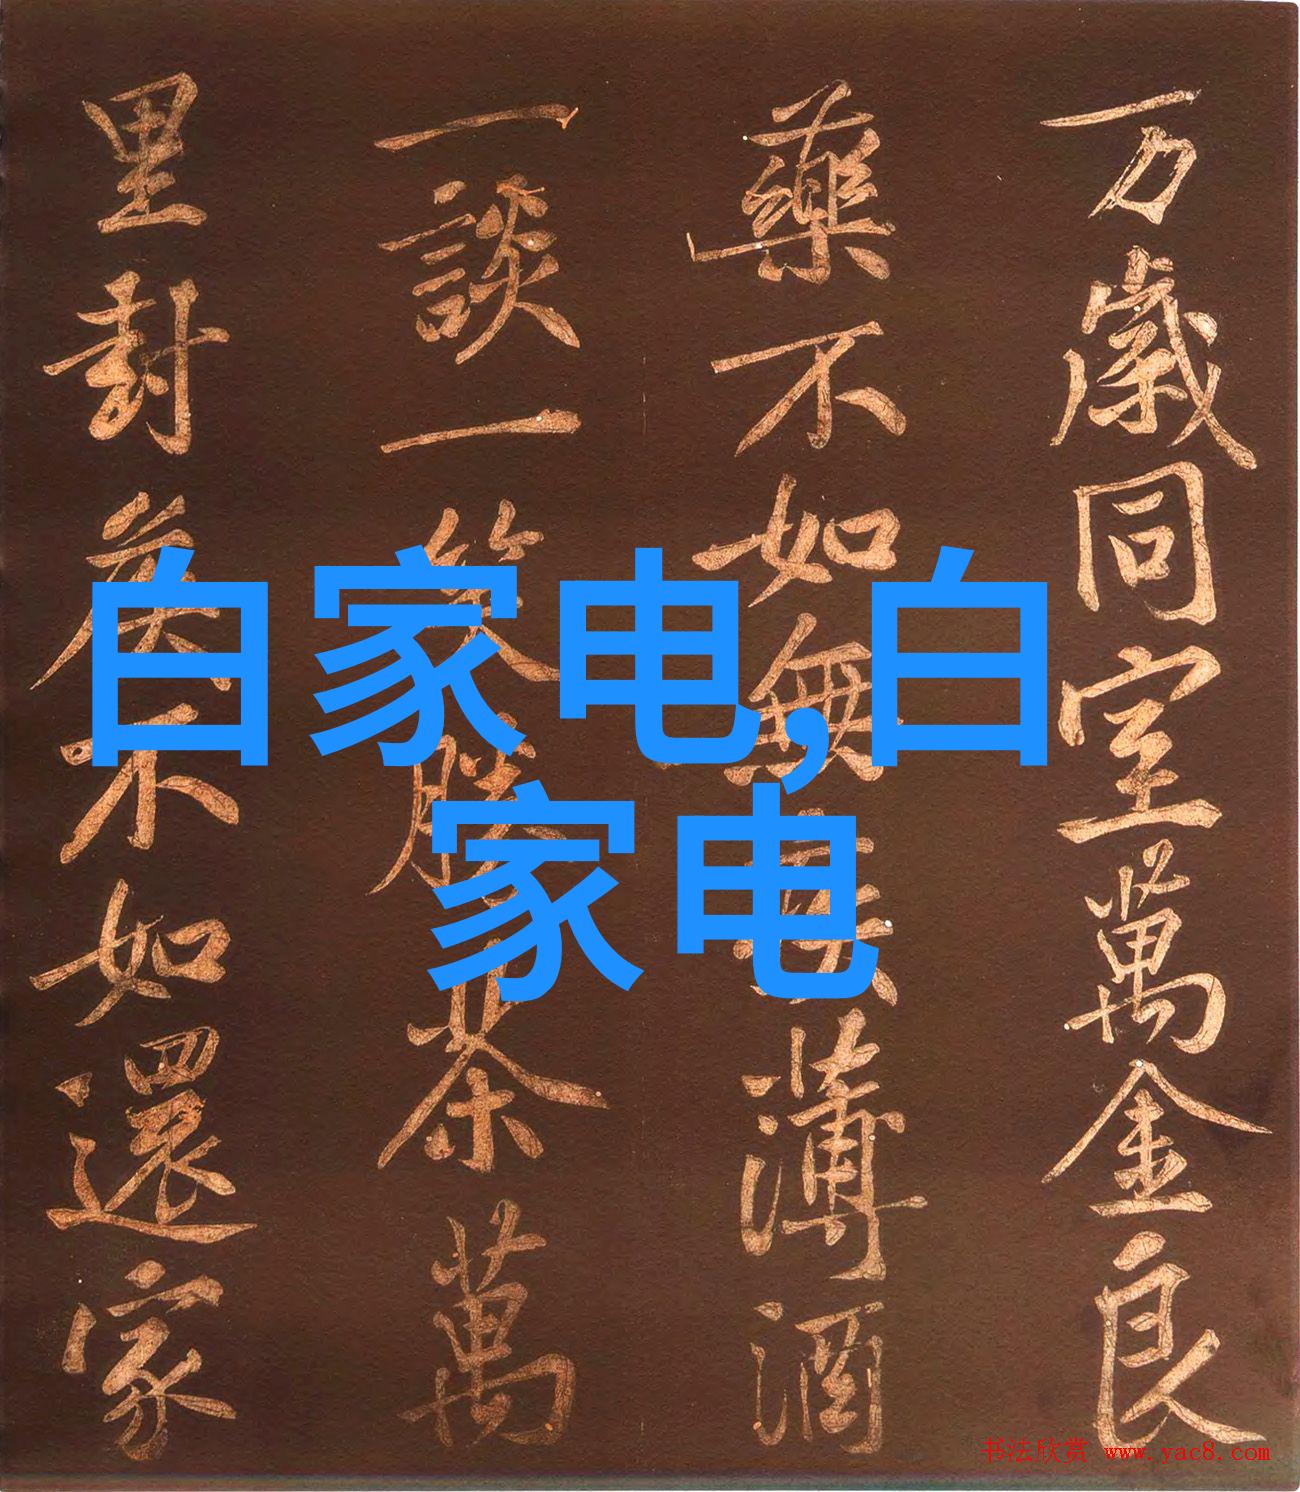 白家电,白
家电
万歲同室萬金良
藥不如無薄酒
一談一笑勝茶萬
里封侯不如還家
书法欣赏 www.yac8.com